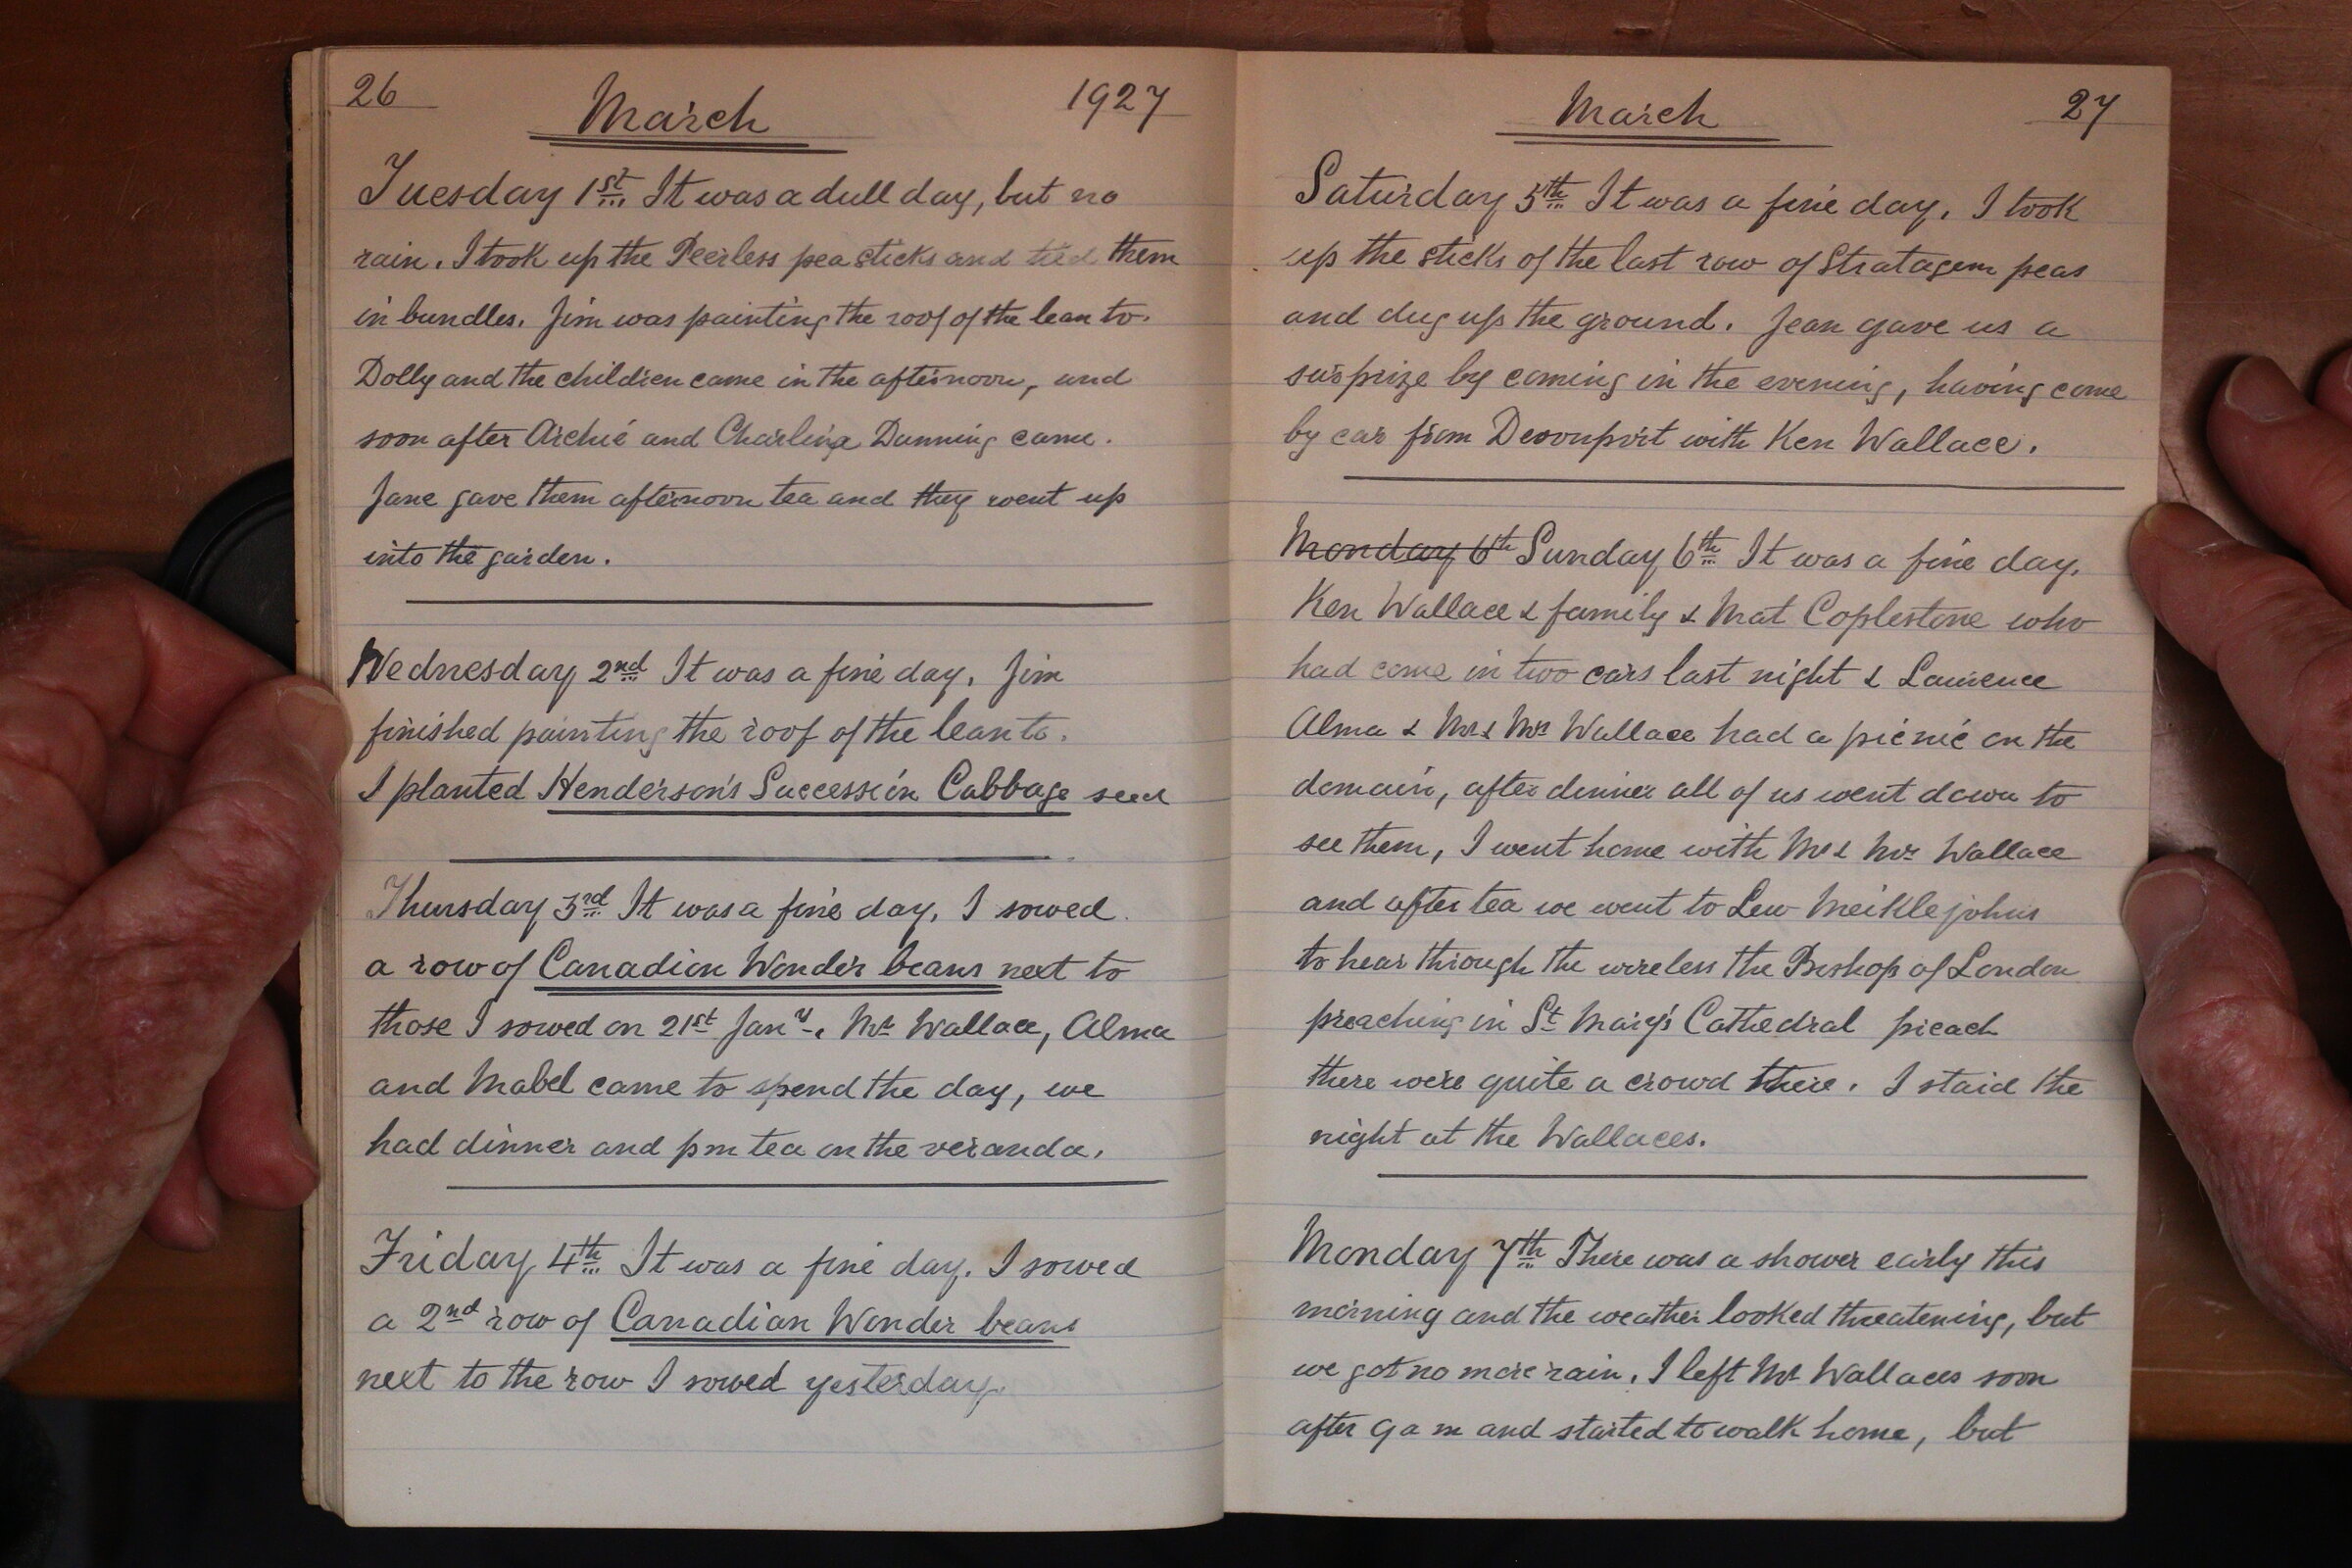 26
March
1927
Tuesday 1st It was a dull day, but no
rain. I took up the Peerless pea sticks and tied them
in bundles. Jim was painting the roof of the lean to.
Dolly and the children came in the afternoon, and
soon after Archie and Charlina Dunning came.
Jane gave them afternoon tea and they went up
into the garden.
Wednesday 2nd It was a fine day. Jim
finished painting the roof of the lean to.
I planted Henderson's Succession Cabbage seed
Thursday 3rd It was a fine day, I sowed
a row of Canadian Wonder beans next to
those I sowed on 21st Jany. Mr Wallace, Alma
and Mabel came to spend the day, we
had dinner and pm tea on the veranda.
Friday 4th It was a fine day. I sowed
a 2nd row of Canadian Wonder beans
next to the row I sowed yesterday.
March
27
Saturday 5th It was a fine day. I took
up the sticks of the last row of Stratagem peas
and dug up the ground. Jean gave us a
surprize by coming in the evening, having come
by car from Devonport with Ken Wallace.
Monday 6th Sunday 6th It was a fine day.
Ken Wallace & family & Mat Coplestone who
had come in two cars last night & Laurence
Alma & Mr & Mrs Wallace had a picnic on the
domain, after dinner all of us went down to
see them, I went home with Mr & Mrs Wallace
and after tea we went to Lew Meiklejohns
to hear through the wireless the Bishop of London
preaching in St Mary's Cathedral preach
there were quite a crowd there. I staid the
night at the Wallaces.
Monday 7th There was a shower early this
morning and the weather looked threatening, but
we got no more rain. I left Mr Wallaces soon
after 9 a m and started to walk home, but